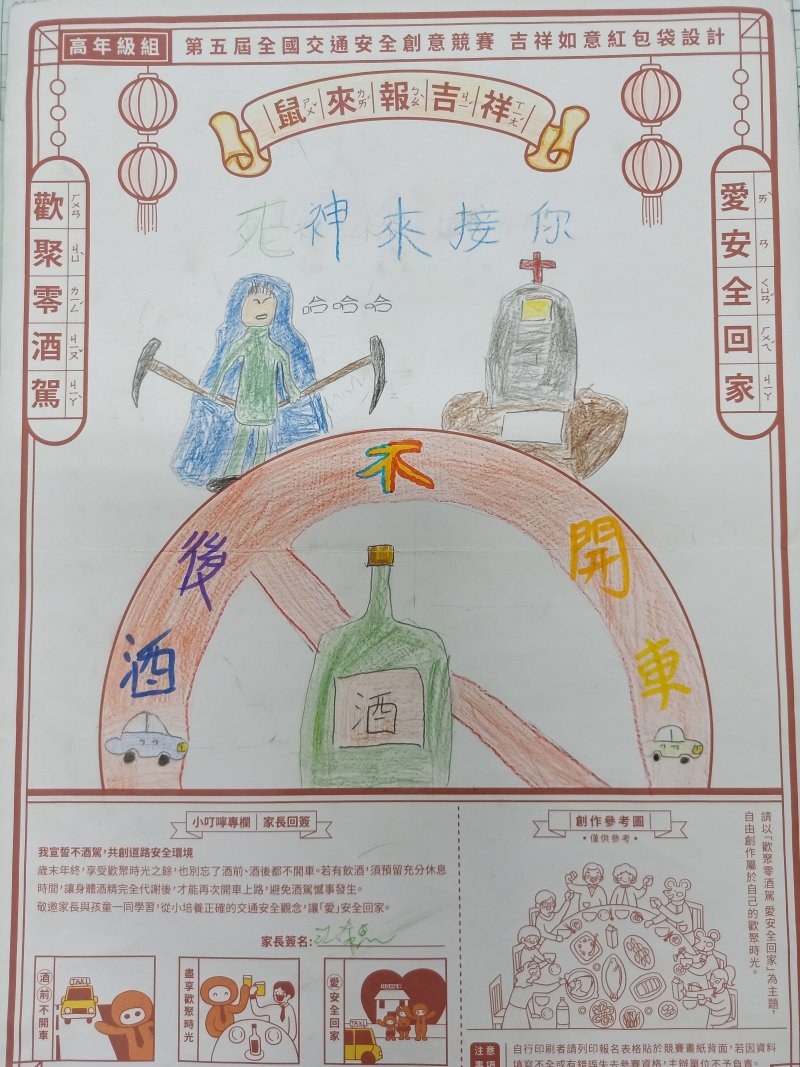 高年級組 第五屆全國交通安全創意競賽 吉祥如意紅包袋設計
鼠來報吉祥
ㄕㄨˇ ㄌㄞˊ ㄅㄠˋ ㄐㄧˊ ㄒㄧㄤˊ
歡聚零酒駕
ㄏㄨㄢ ㄐㄩˋ ㄌㄧㄥˊ ㄐㄧㄡˇ ㄐㄧㄚˋ
愛安全回家
ㄞˋ ㄢ ㄑㄩㄢˊ ㄏㄨㄟˊ ㄐㄧㄚ
死神來接你
哈哈哈
酒後不開車
酒
小叮嚀專欄 家長回簽
我宣誓不酒駕，共創道路安全環境
歲末年終，享受歡聚時光之餘，也別忘了酒前、酒後都不開車。若有飲酒，須預留充分休息
時間，讓身體酒精完全代謝後，才能再次開車上路，避免酒駕憾事發生。
敬邀家長與孩童一同學習，從小培養正確的交通安全觀念，讓「愛」安全回家。
家長簽名：
酒前不開車
TAXI
盡享歡聚時光
愛安全回家
HOME
TAXI
創作參考圖
•僅供參考•
請以「歡聚零酒駕 愛安全回家」為主題，
自由創作屬於自己的歡聚時光。
注意
事項
自行印刷者請列印報名表格貼於競賽畫紙背面，若因資料
填寫不全或有錯誤失去參賽資格，主辦單位不予負責。